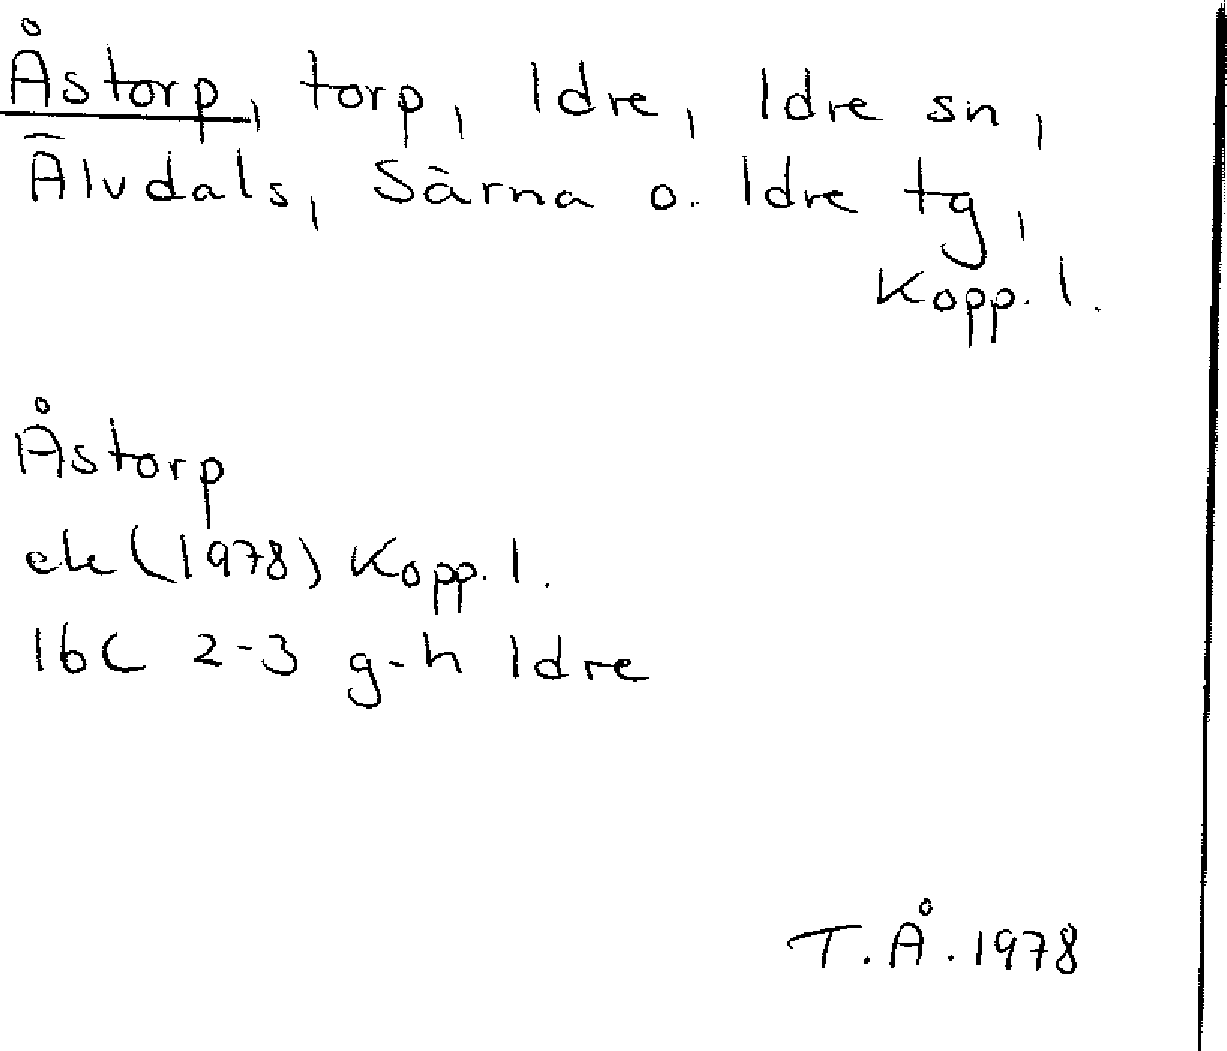 Åstorp, torp, Idre, Idre sn,
Älvdals, Särna o. Idre tg,
Kopp. l.
Åstorp
ek (1978) Kopp. l.
16C 2-3 g-h Idre
T. Å. 1978